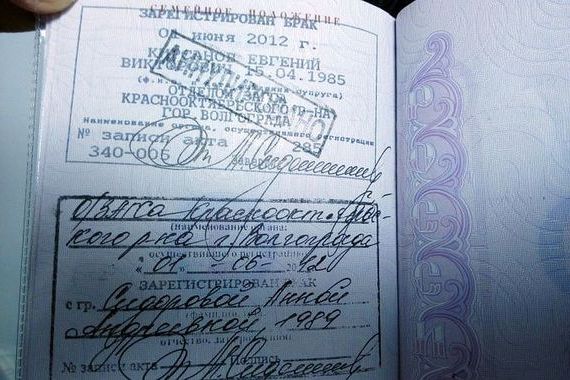 СЕМЕЙНОЕ ПОЛОЖЕНИЕ
ЗАРЕГИСТРИРОВАН БРАК
ИЮНЯ 2012 Г.
ЕВГЕНИЙ
15.04.1985
ОТДЕЛОМ
КРАСНООКТЯБРЬСКОГО Р-НА
ГОР. ВОЛГОГРАДА
наименование органа, осуществившего регистрацию
№ записи акта 285
340-006 Заверил
О/ЗАГСа Краснооктябрь-
ского р-на г. Волгограда
(наименование органа,
осуществившего регистрацию)
"01" - 06 -
ЗАРЕГИСТРИРОВАН БРАК
с гр. Сидоровой Анной
Андреевной, 1989
отчество, дата рождения)
№ записи акта Подпись